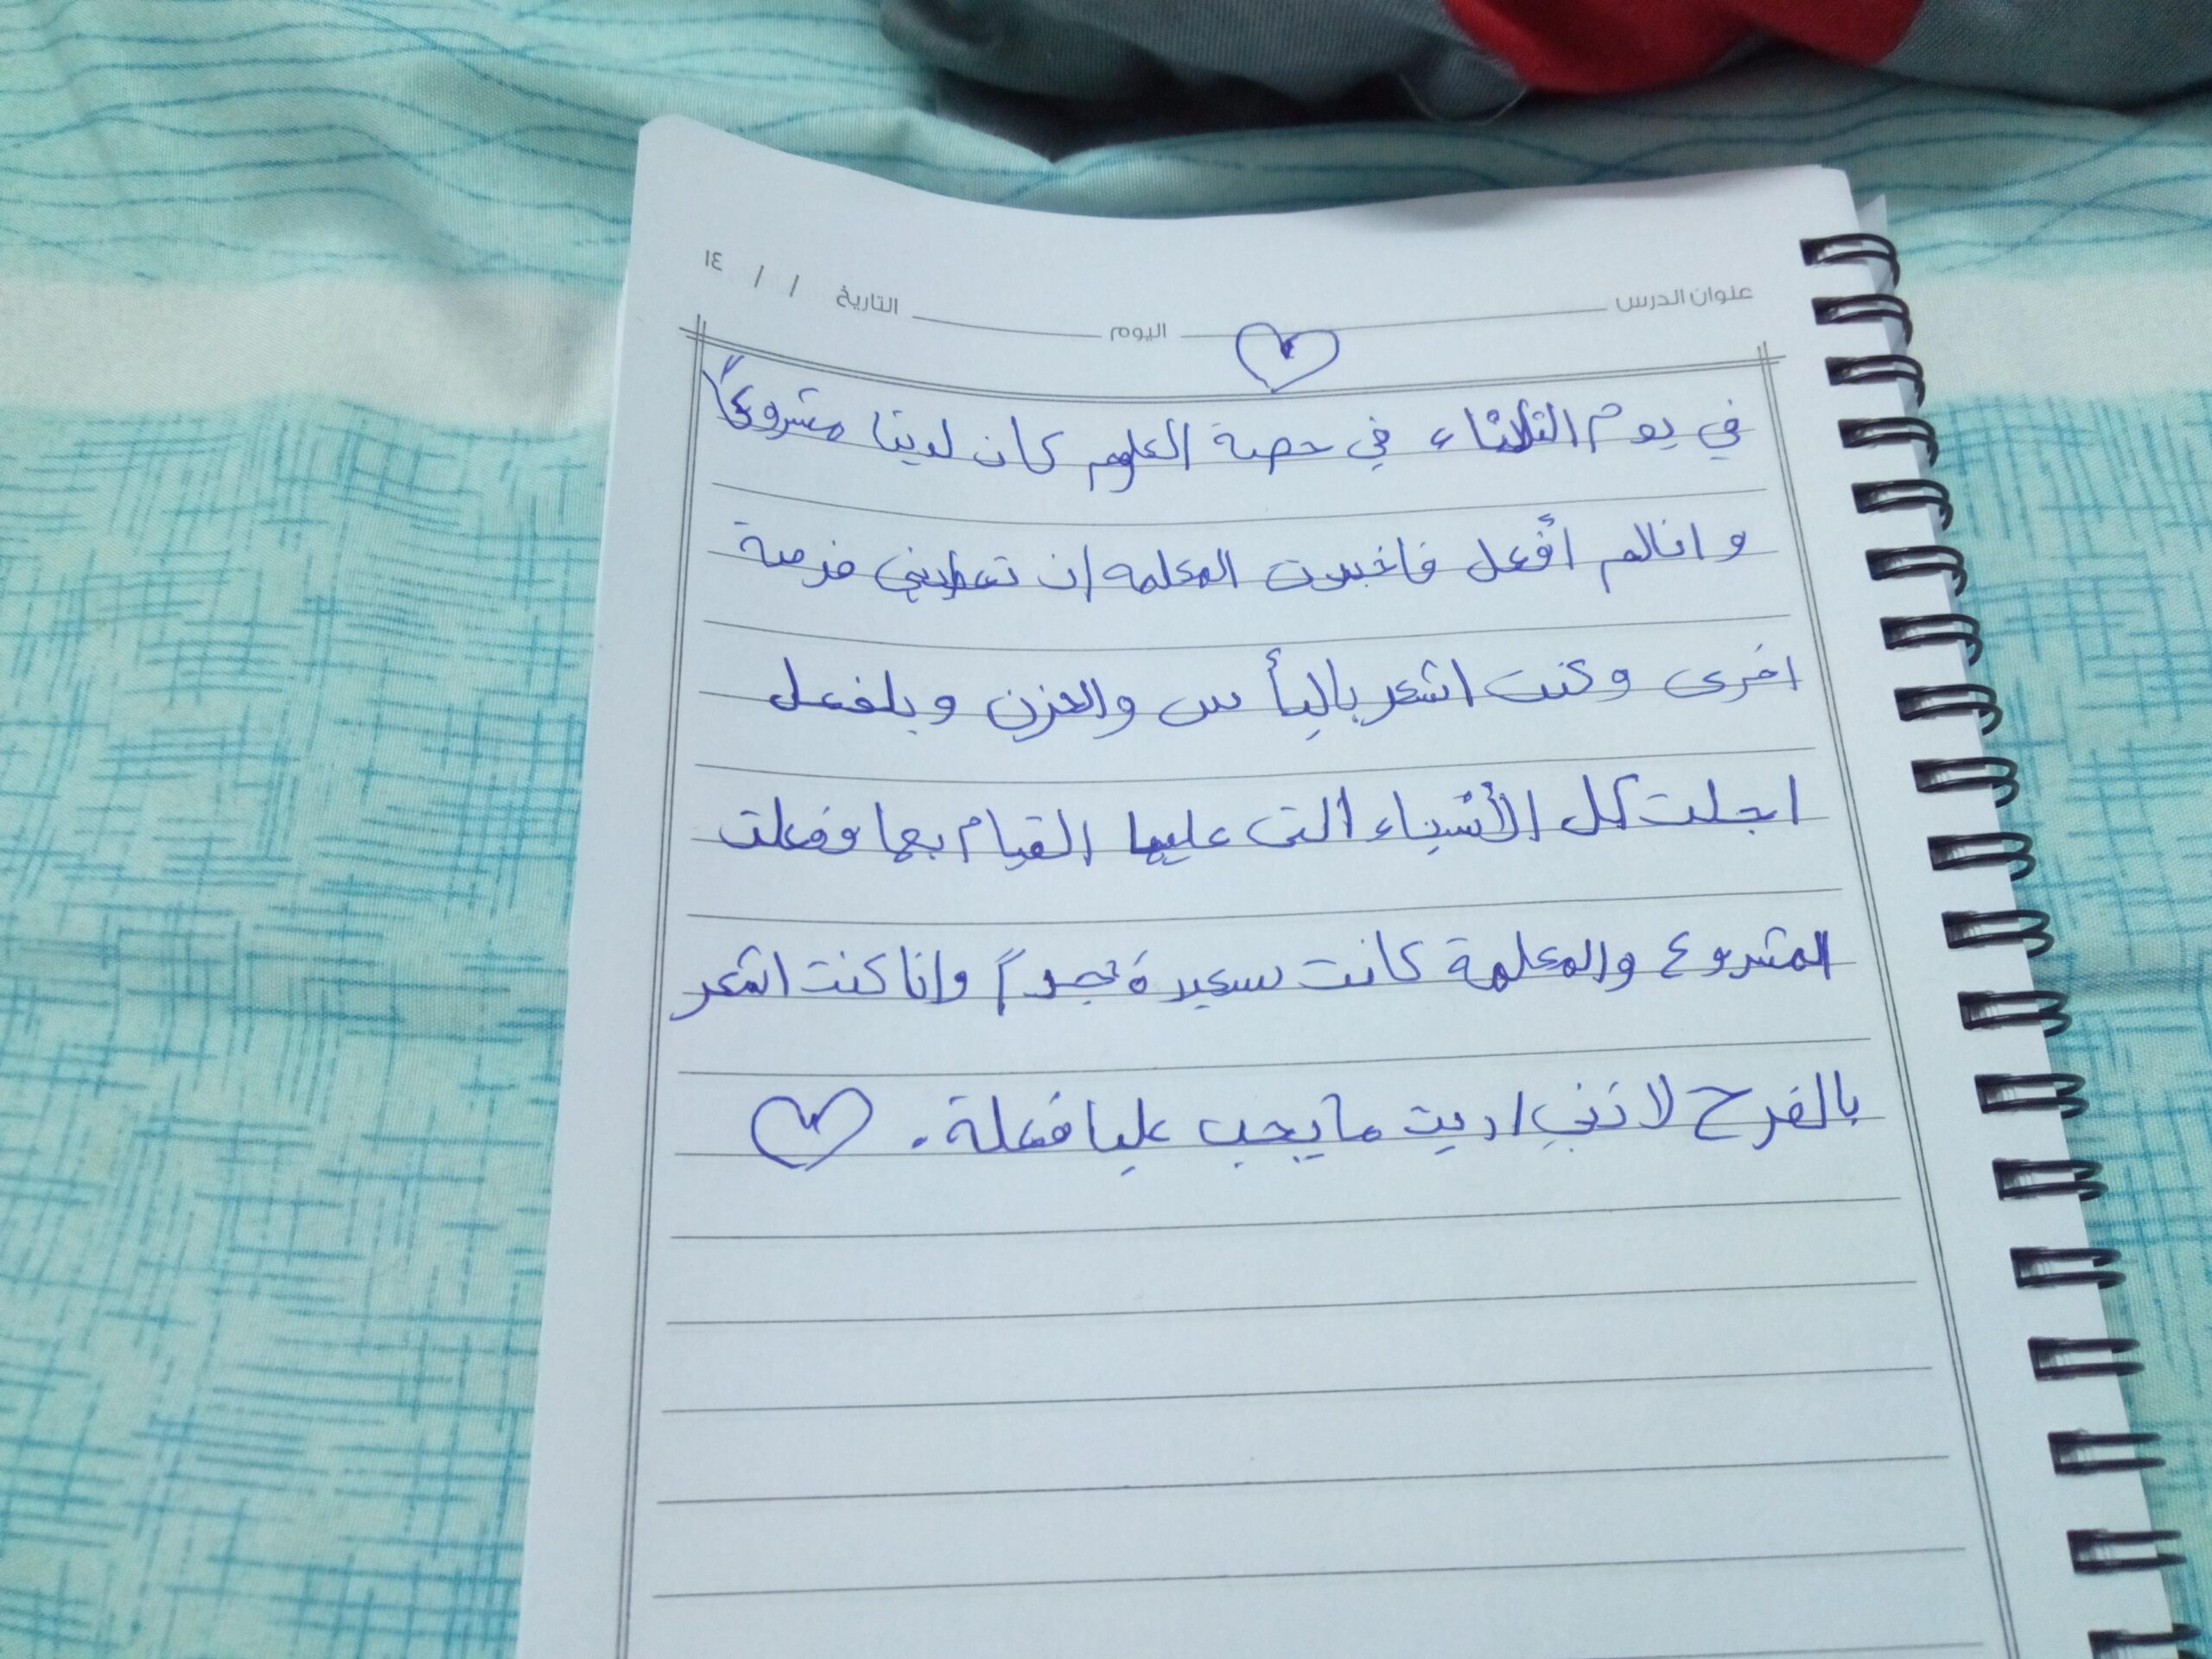 عنوان الدرس اليوم التاريخ / / ١٤
في يوم الثلاثاء في حصة العلوم كان لدينا مشروعاً
و انالم أفعل فاخبرت المعلمه ان تعطيني فرصة
اخرى و كنت اشعر باليأس والحزن وبلفعل
اجلت كل الأشياء التى عليها القيام بها وفعلت
المشروع والمعلمة كانت سعيدة جداً وانا كنت اشعر
بالفرح لانني اديت ما يجب عليا فعلة.